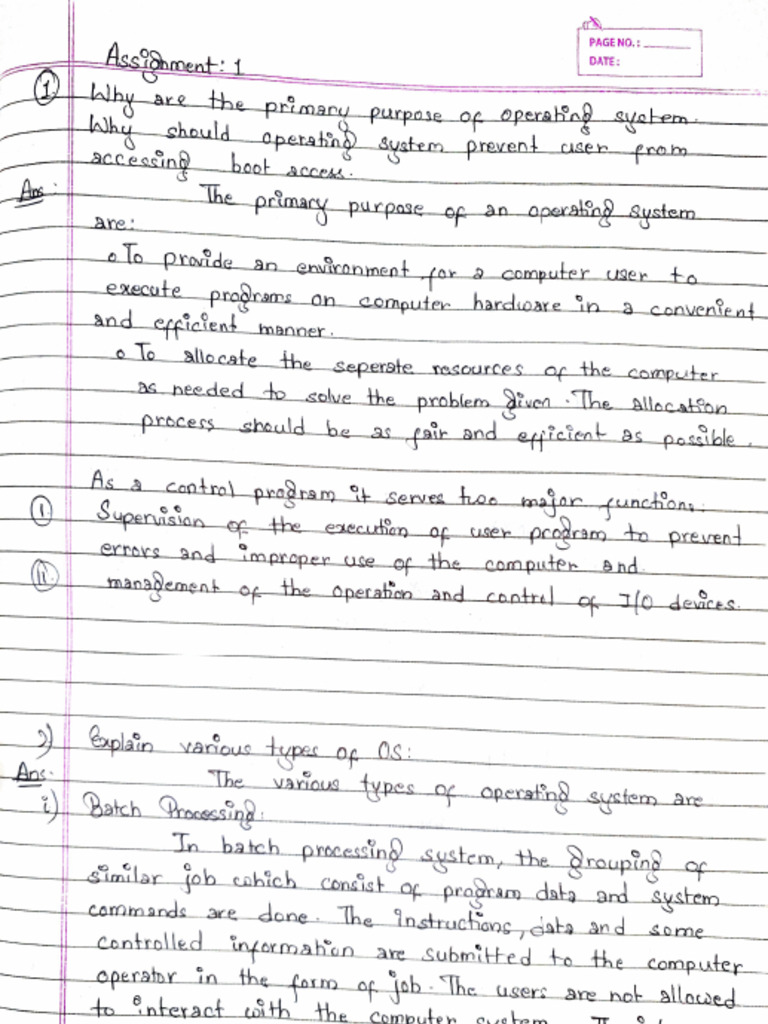 PAGE NO.:
DATE:
Assignment: 1
① Why are the primary purpose of operating system.
Why should operating system prevent user from
accessing boot access.
Ans: The primary purpose of an operating system
are:
o To provide an environment for a computer user to
execute programs on computer hardware in a convenient
and efficient manner.
o To allocate the seperate resources of the computer
as needed to solve the problem given. The allocation
process should be as fair and efficient as possible.
As a control program it serves two major functions:
Ⓘ Supervision of the execution of user program to prevent
errors and improper use of the computer and.
II. management of the operation and control of I/O devices.
2) Explain various types of OS:
Ans. The various types of operating system are
i) Batch Processing:
In batch processing system, the grouping of
similar job which consist of program data and system
commands are done. The instructions, data and some
controlled information are submitted to the computer
operator in the form of job. The users are not allowed
to interact with the computer system.